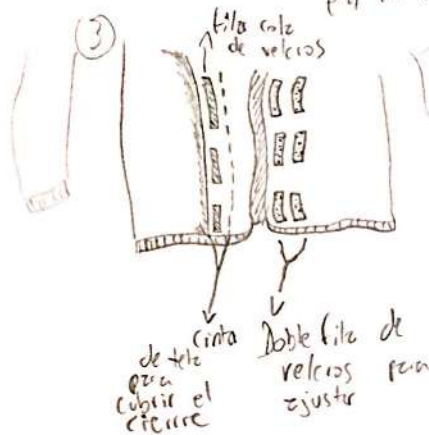 3
fila sola
de velcros
cinta
de tela
para
cubrir el
cierre
Doble fila de
velcros para
ajustar